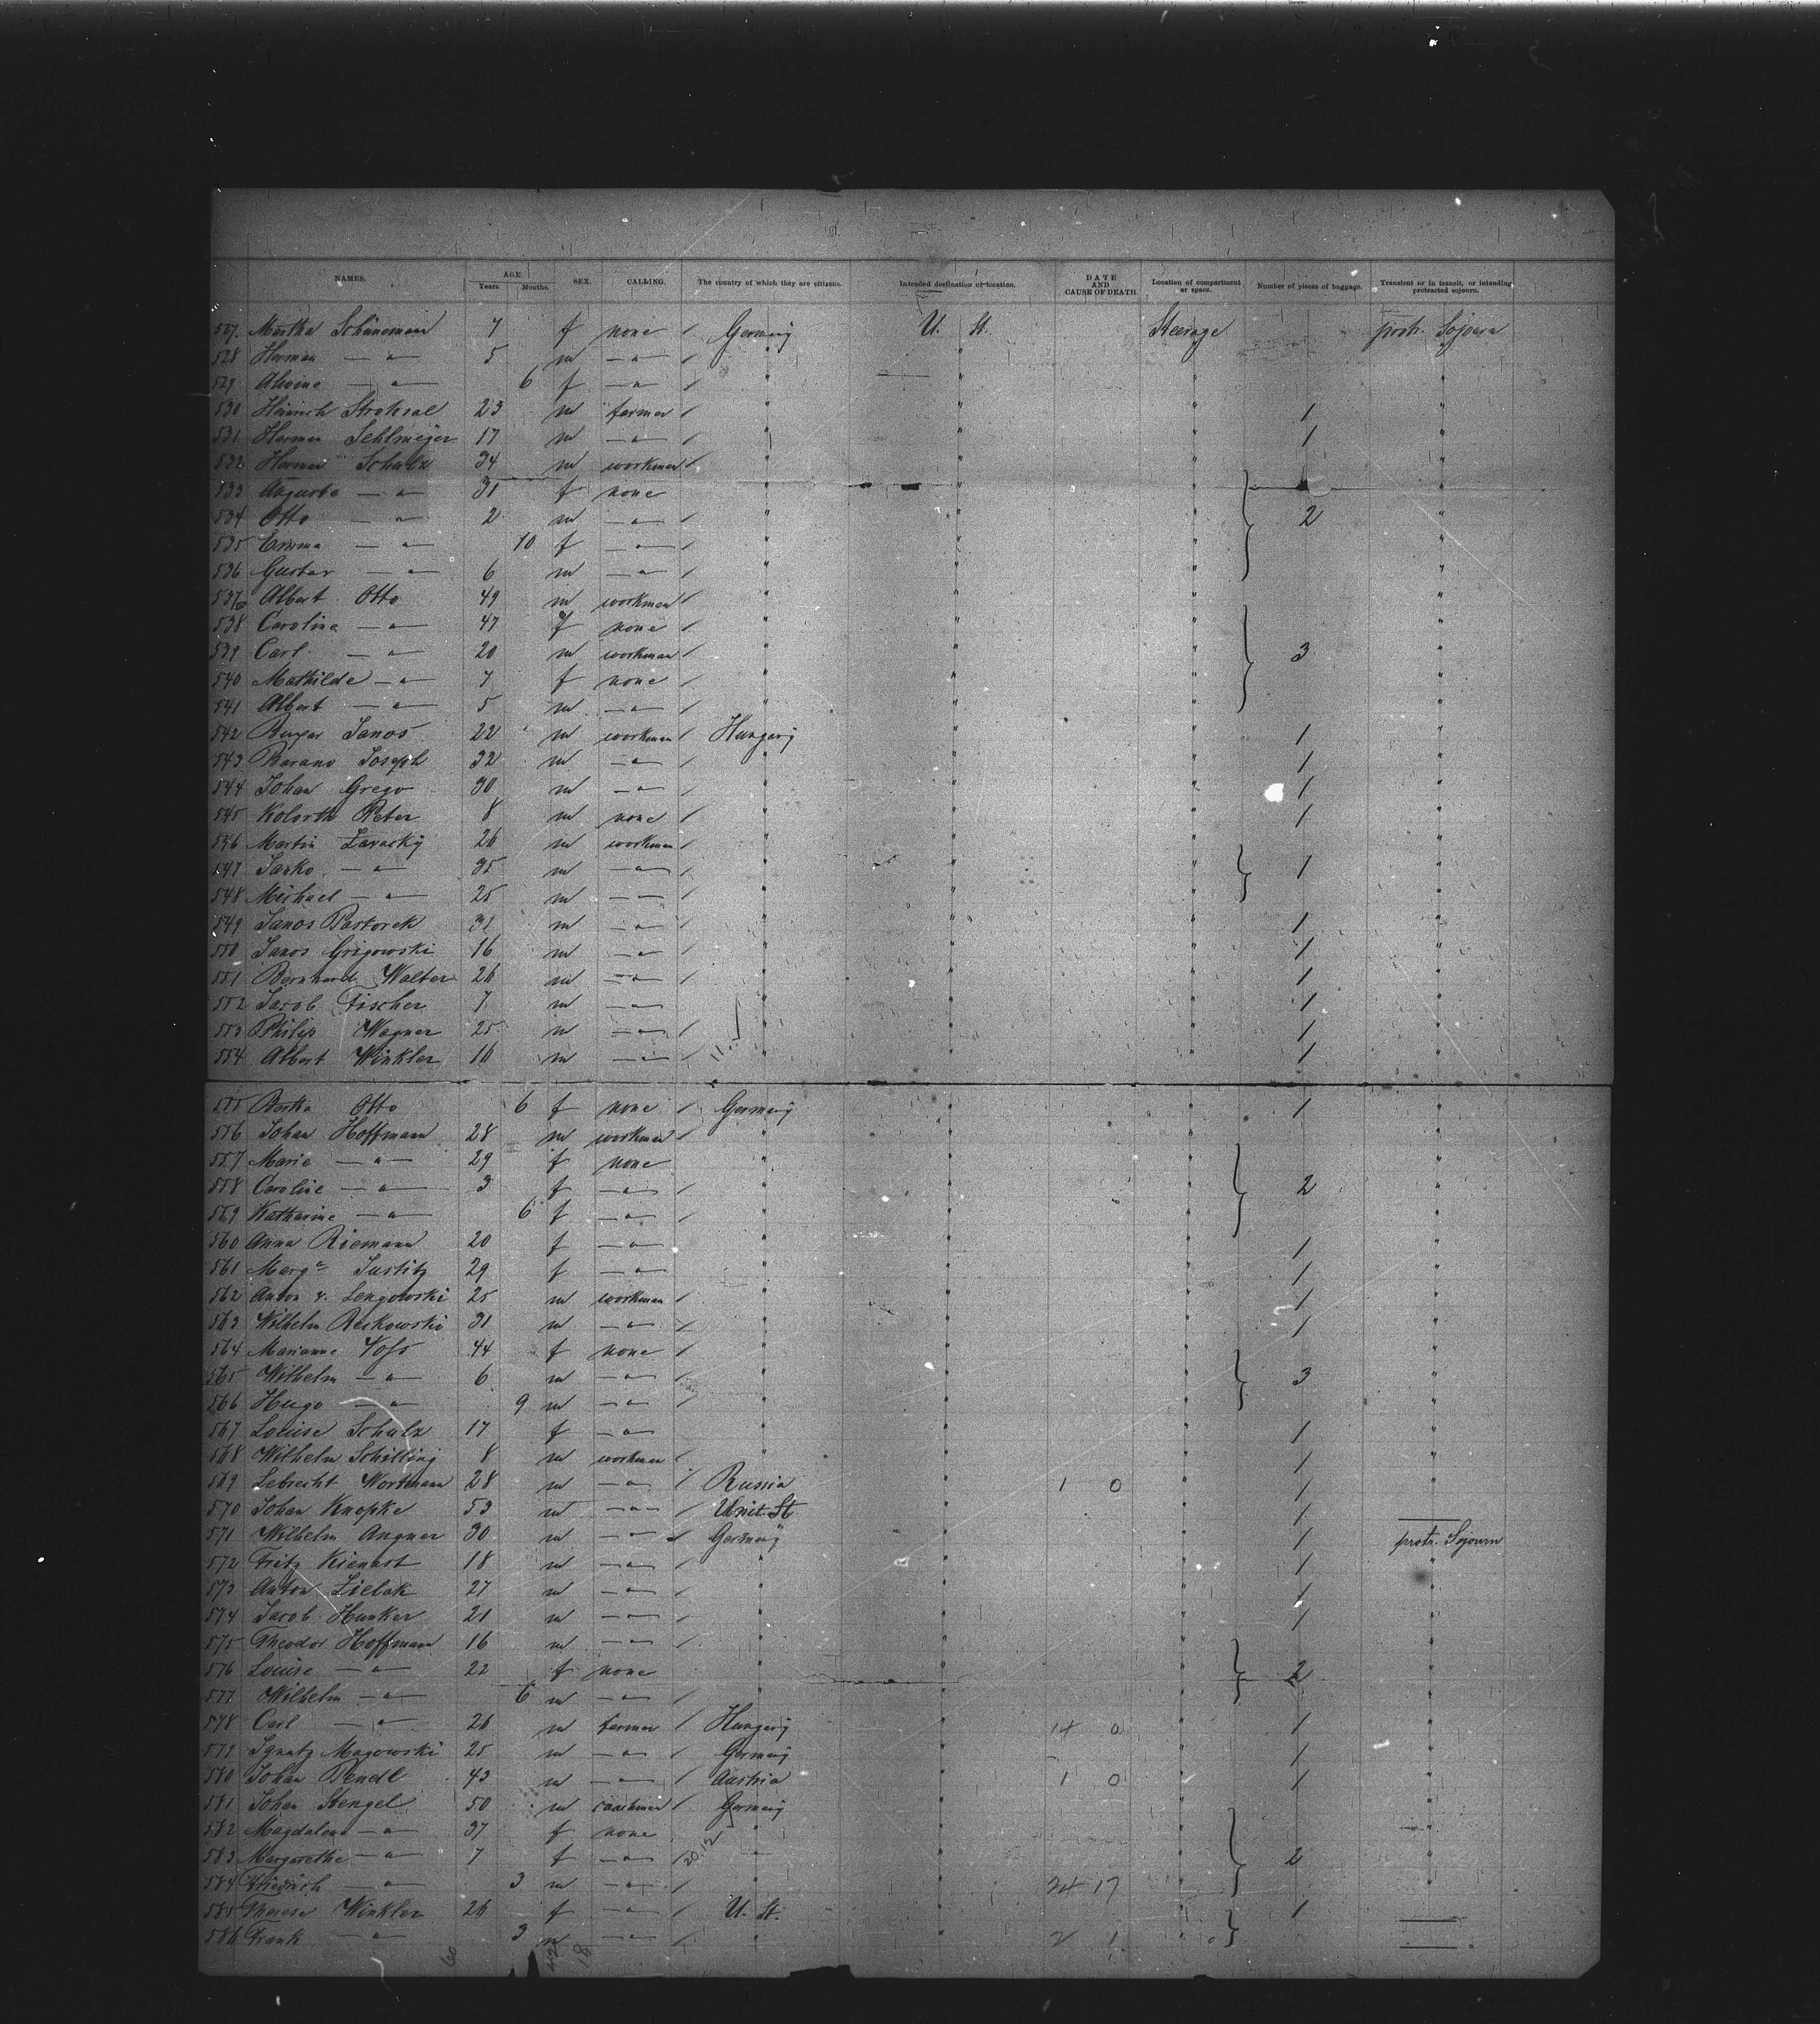 NAMES. AGE. Years. Months. SEX. CALLING. The country of which they are citizens. Intended destination or location. DATE AND CAUSE OF DEATH. Location of compartment or space. Number of pieces of baggage. Transient or in transit, or intending protracted sojourn.
527. Martha Schünemann 7 f none / Germany U. St. Steerage protr. Sojourn
528 Herman — " — 5 m — " — / " " " "
529 Alwine — " — 6 f — " — / " " " "
530 Heinrich Strohsal 23 m farmer / " " " 1 "
531 Herman Sehlmeyer 17 m — " — / " " " 1 "
532 Herman Schulz 34 m workman / " " " "
533 Auguste — " — 31 f none " " " "
534 Otto — " — 2 m — " — / " " " 2 "
535 Emma — " — 10 f — " — / " " " "
536 Gustav — " — 6 m — " — / " " " "
537 Albert Otto 49 m workman / " " " "
538 Carolina — " — 47 f none / " " " "
539 Carl — " — 20 m workman / " " " 3 "
540 Mathilde — " — 7 f none / " " " "
541 Albert — " — 5 m — " — / " " " "
542 Janos 22 m workman / Hungary " " 1 "
543 Barano Joseph 32 m — " — / " " " 1 "
544 Johan Grego 30 m — " — / " " " 1 "
545 Peter 8 m none / " " " 1 "
546 Martin Zavacky 26 m workman / " " " "
547 Janko — " — 35 m — " — / " " " 1 "
548 Michael — " — 25 m — — / " " " "
549 Janos Pastorek 31 m — " — / " " " 1 "
550 Janos Grigowski 16 m — " — / " " " 1 "
551 Bernhard Walter 26 m — " — / " " " 1 "
552 Jacob Fischer 7 m — " — " " " 1 "
553 Philip Wagner 25 m — " — / " " " 1 "
554 Albert Winkler 16 m — " — / " " " 1 "
555 Bertha Otto 6 f none / Germany " " 1 "
556 Johan Hoffmann 28 m workman / " " " "
557 Marie — " — 29 f none " " " "
558 Caroline — " — 3 f — " — / " " " 2 "
559 Katharine — " — 6 f — " — / " " " "
560 Anna Riemann 20 f — " — " " " 1 "
561 Marg.a Justitz 29 f — " — " " " 1 "
562 Anton v. Lengowski 25 m workman / " " " 1 "
563 Wilhelm Reckowski 31 m — " — / " " " 1 "
564 Marianne Voss 44 f none / " " " "
565 Wilhelm — " — 6 m — " — / " " " 3 "
566 Hugo — " — 9 m — " — / " " " "
567 Louise Schulz 17 f — " — " " " 1 "
568 Wilhelm Schilling 8 m workman / " " " 1 "
569 Lebrecht Wortmann 28 m — " — / Russia " 1 0 " 1 "
570 Johan Knopke 53 m — " — / Unit. St. " " 1 —
571 Wilhelm Angner 30 m — " — Germany " " 1 protr. Sojourn
572 Fritz Kienast 18 m — " — / " " " 1 "
573 Anton Zielak 27 m — " — / " " " 1 "
574 Jacob Hunker 21 m — " — / " " " 1 "
575 Theodor Hoffmann 16 m — " — / " " " "
576 Louise — " — 22 f none " " " 2 "
577 Wilhelm — " — 6 m — " — / " " " "
578 Carl — " — 26 m farmer / Hungary " 14 0 " 1 "
579 Ignatz Magowski 25 m — " — / Germany " " 1 "
580 Johan Bendl 43 m — " — / Austria " 1 0 " 1 "
581 Johan Stengel 50 m workman / Germany " " "
582 Magdalena — " — 37 f none " " " "
583 Margarethe — " — 7 f — " — / 20.12 " " " 2 "
584 Friedrich — " — 3 m — " — / " 24 17 " "
585 Therese Winkler 26 f — " — / U. St. " " 1 —
586 Frank — " — 3 m — " — / " 2 1 " —
60 18